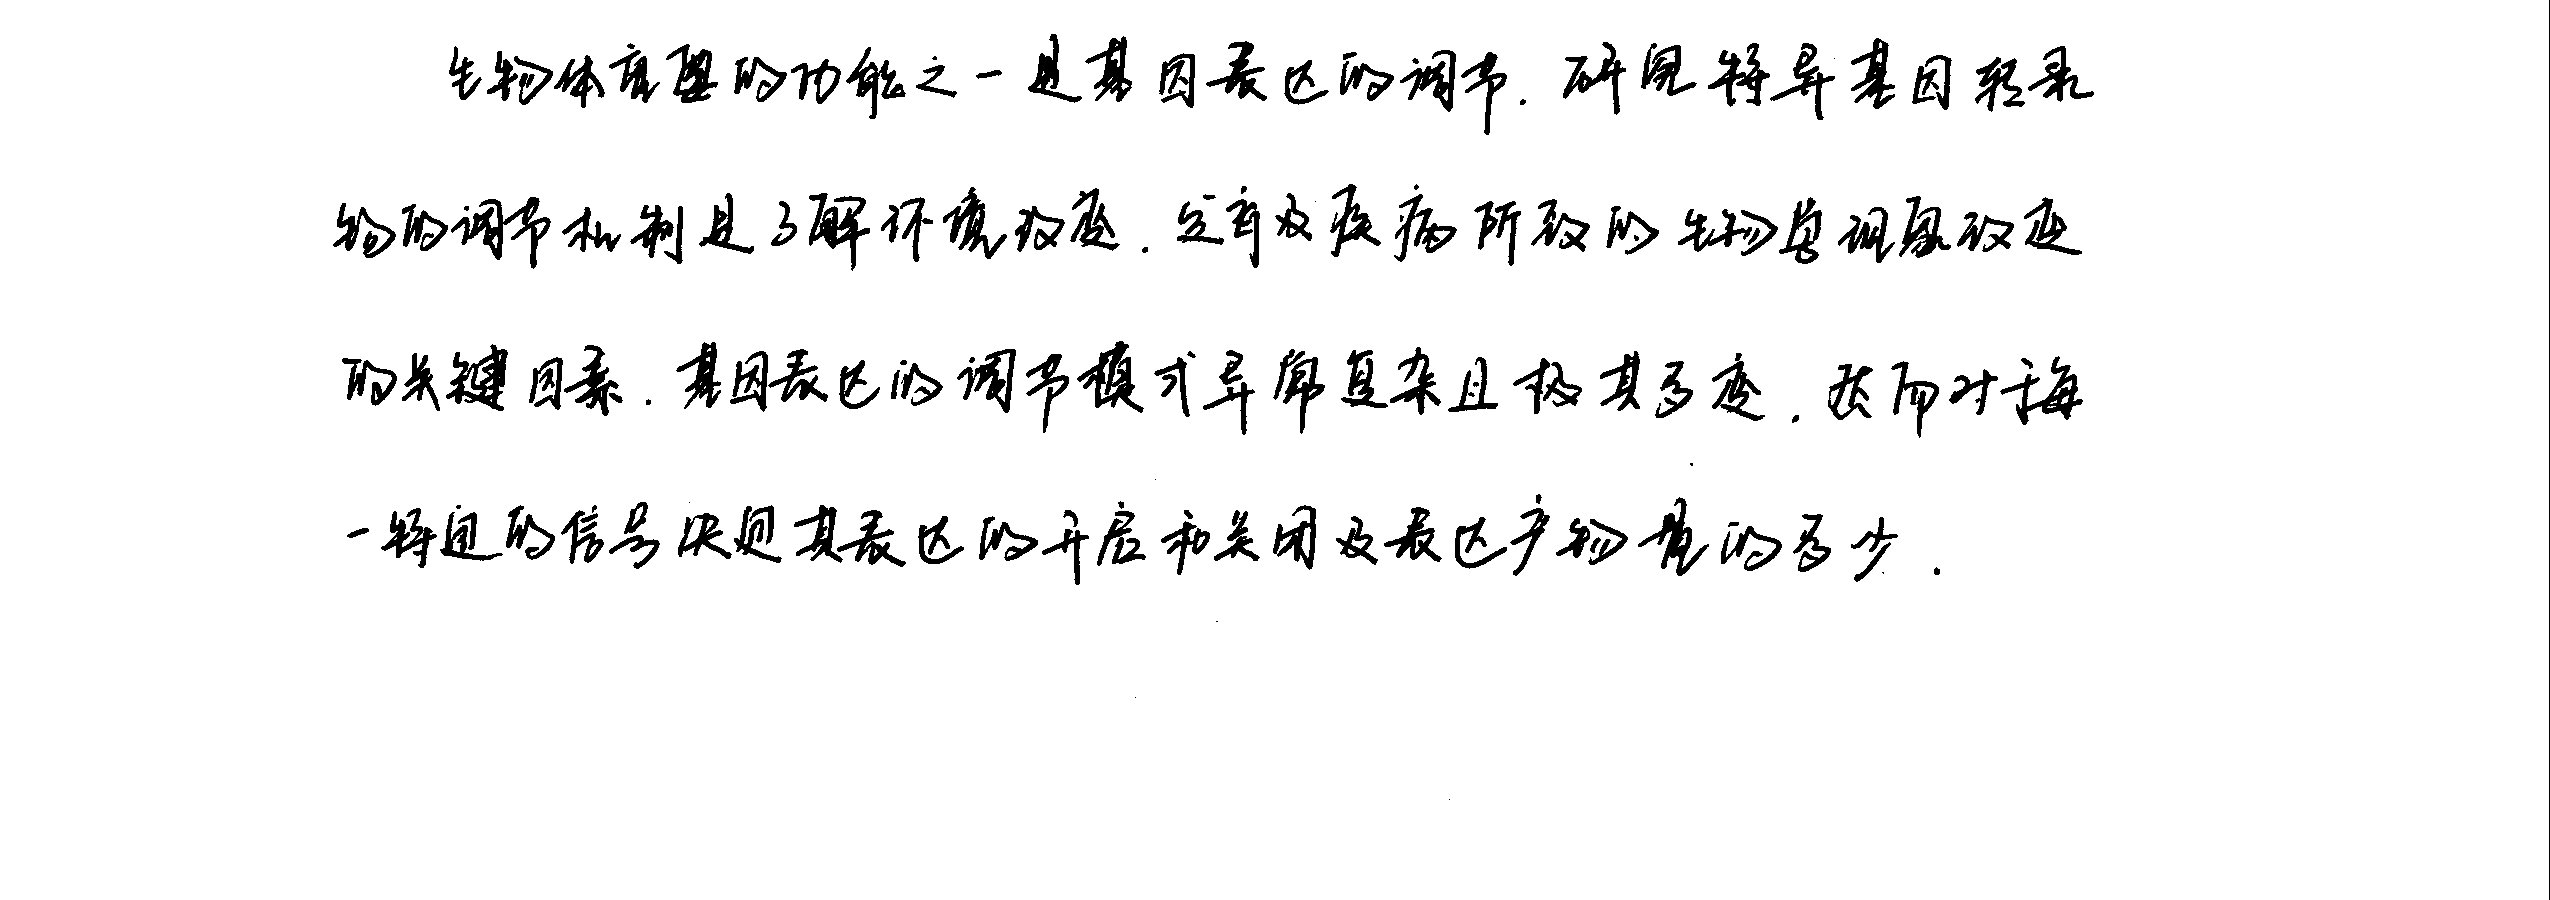 生物体重要的功能之一是基因表达的调节. 研究特异基因转录
物的调节机制是了解环境改变. 发育及疾病所致的生物学现象改变
的关键因素. 基因表达的调节模式异常复杂且极其多变. 然而对于每
一特定的信号决定其表达的开启和关闭及表达产物量的多少.